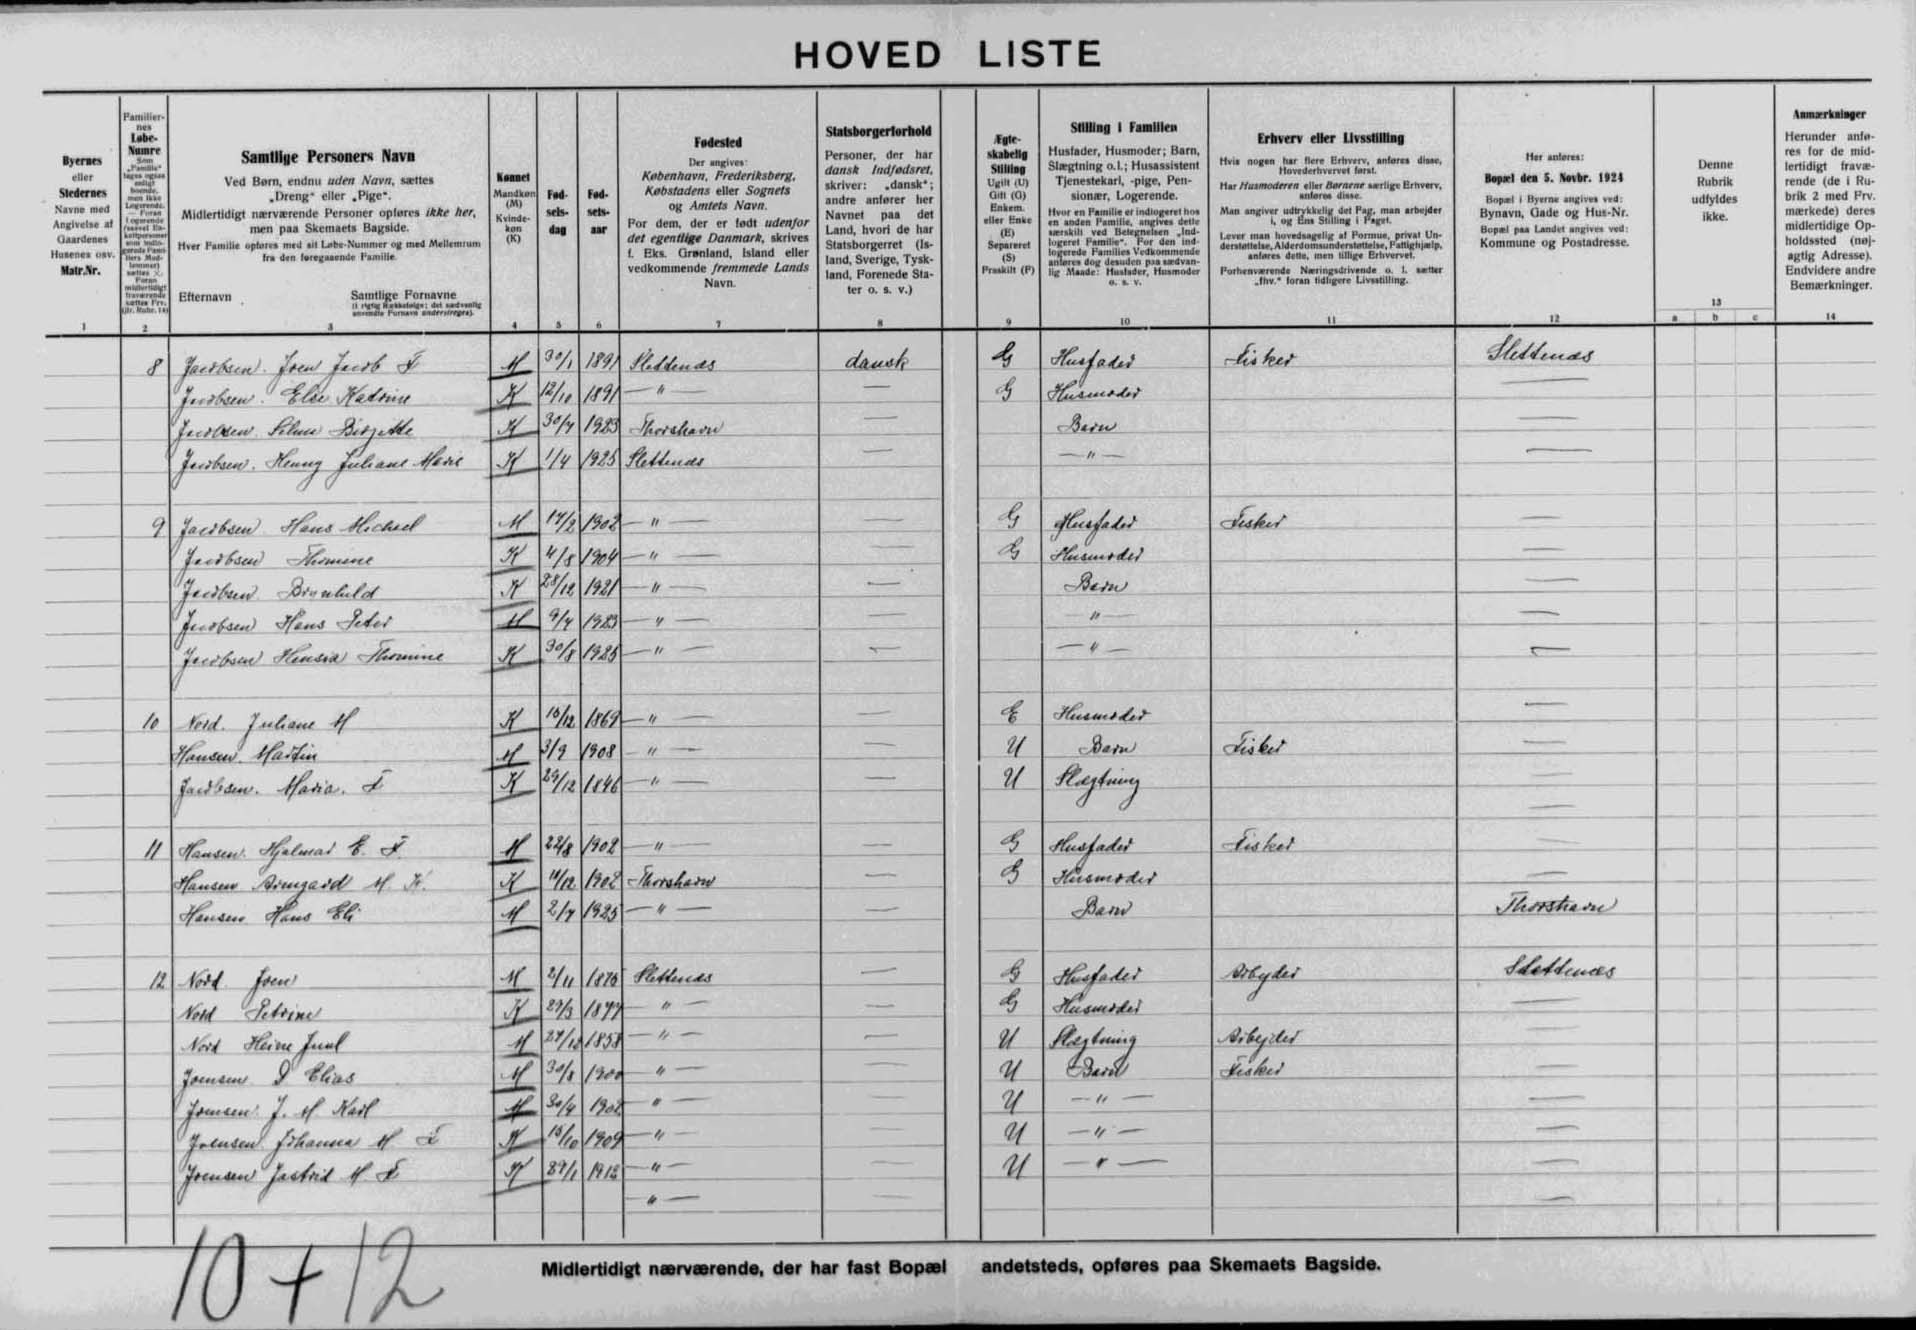 HOVED LISTE
Byernes
eller
Stedernes
Navne med
Angivelse af
Gaardenes
Husenes osv.
Matr.Nr.
1
Familier-
nes
Løbe-
Numre
2
Samtlige Personers Navn
Ved Børn, endnu uden Navn, sættes
„Dreng“ eller „Pige“.
Midlertidigt nærværende Personer opføres ikke her,
men paa Skemaets Bagside.
Hver Familie opføres med sit Løbe-Nummer og med Mellemrum
fra den foregaaende Familie.
Efternavn Samtlige Fornavne
(i rigtig Rækkefølge; det sædvanlig
anvendte Fornavn understreges).
3
Kønnet
Mandkøn
(M)
Kvinde-
køn
(K)
4
Fød-
sels-
dag
5
Fød-
sels-
aar
6
Fødested
Der angives:
København, Frederiksberg,
Købstadens eller Sognets
og Amtets Navn.
For dem, der er født udenfor
det egentlige Danmark, skrives
f. Eks. Grønland, Island eller
vedkommende fremmede Lands
Navn.
7
Statsborgerforhold
Personer, der har
dansk Indfødsret,
skriver: „dansk“;
andre anfører her
Navnet paa det
Land, hvori de har
Statsborgerret (Is-
land, Sverige, Tysk-
land, Forenede Sta-
ter o. s. v.)
8
Ægte-
skabelig
Stilling
Ugift (U)
Gift (G)
Enkem.
eller Enke
(E)
Separeret
(S)
Fraskilt (F)
9
Stilling i Familien
Husfader, Husmoder; Barn,
Slægtning o.l.; Husassistent
Tjenestekarl, -pige, Pen-
sionær, Logerende.
Hvor en Familie er indlogeret hos
en anden Familie, angives dette
særskilt ved Betegnelsen „Ind-
logeret Familie“. For den ind-
logerede Families Vedkommende
anføres dog desuden paa sædvan-
lig Maade: Husfader, Husmoder
o. s. v.
10
Erhverv eller Livsstilling
Hvis nogen har flere Erhverv, anføres disse,
Hovederhvervet først.
Har Husmoderen eller Børnene særlige Erhverv,
anføres disse.
Man angiver udtrykkelig det Fag, man arbejder
i, og Ens Stilling i Faget.
Lever man hovedsagelig af Formue, privat Un-
derstøttelse, Alderdomsunderstøttelse, Fattighjælp,
anføres dette, men tillige Erhvervet.
Forhenværende Næringsdrivende o. l. sætter
„fhv.“ foran tidligere Livsstilling.
11
Her anføres:
Bopæl den 5. Novbr. 1924
Bopæl i Byerne angives ved:
Bynavn, Gade og Hus-Nr.
Bopæl paa Landet angives ved:
Kommune og Postadresse.
12
Denne
Rubrik
udfyldes
ikke.
13
a b c
Anmærkninger
Herunder anfø-
res for de mid-
lertidigt fravæ-
rende (de i Ru-
brik 2 med Frv.
mærkede) deres
midlertidige Op-
holdssted (nøj-
agtig Adresse).
Endvidere andre
Bemærkninger.
14
8 Jacobsen. Joen Jacob F M 30/1 1891 Slettenæs dansk G Husfader Fisker Slettenæs
Jacobsen. Else Katrine K 12/10 1891 — " — — G Husmoder —
Jacobsen Birgitte K 30/7 1923 Thorshavn — Barn —
Jacobsen. Henny Juliane Marie K 1/4 1925 Slettenæs — — " — —
9 Jacobsen Hans Michael M 1902 — " — — G Husfader Fisker —
Jacobsen Thomine K 4/8 1904 — " — — G Husmoder —
Jacobsen Brynhild K 28/12 1921 — " — — Barn —
Jacobsen Hans Peter M 9/7 1923 — " — — — " — —
Jacobsen Thomine K 30/8 1925 — " — — — " — —
10 Nord. Juliane M K 1869 — " — — E Husmoder —
Hansen. Martin M 3/9 1908 — " — — U Barn Fisker —
Jacobsen. Maria. F K 29/12 1846 — " — — U Slægtning —
11 Hansen. Hjalmar E. F. M 22/8 1902 — " — — G Husfader Fisker —
Hansen Armgard M. K. K 1902 Thorshavn — G Husmoder —
Hansen Hans Eli M 2/7 1925 — " — — Barn Thorshavn
12 Nord. Joen M 2/11 Slettenæs — G Husfader Arbejder Slettenæs
Nord Petrine K 29/3 1877 — " — — G Husmoder —
Nord Heine Juul M 1858 — " — — U Slægtning Arbejder —
Joensen D Elias M 30/8 1900 — " — — U Barn Fisker —
Joensen J. M Karl M 30/4 1902 — " — — U — " — —
Joensen Johanna M F K 15/10 1909 — " — — U — " — —
Joensen Jastrid M F K 1912 — " — — U — " — —
— " — — —
Midlertidigt nærværende, der har fast Bopæl andetsteds, opføres paa Skemaets Bagside.
10 + 12